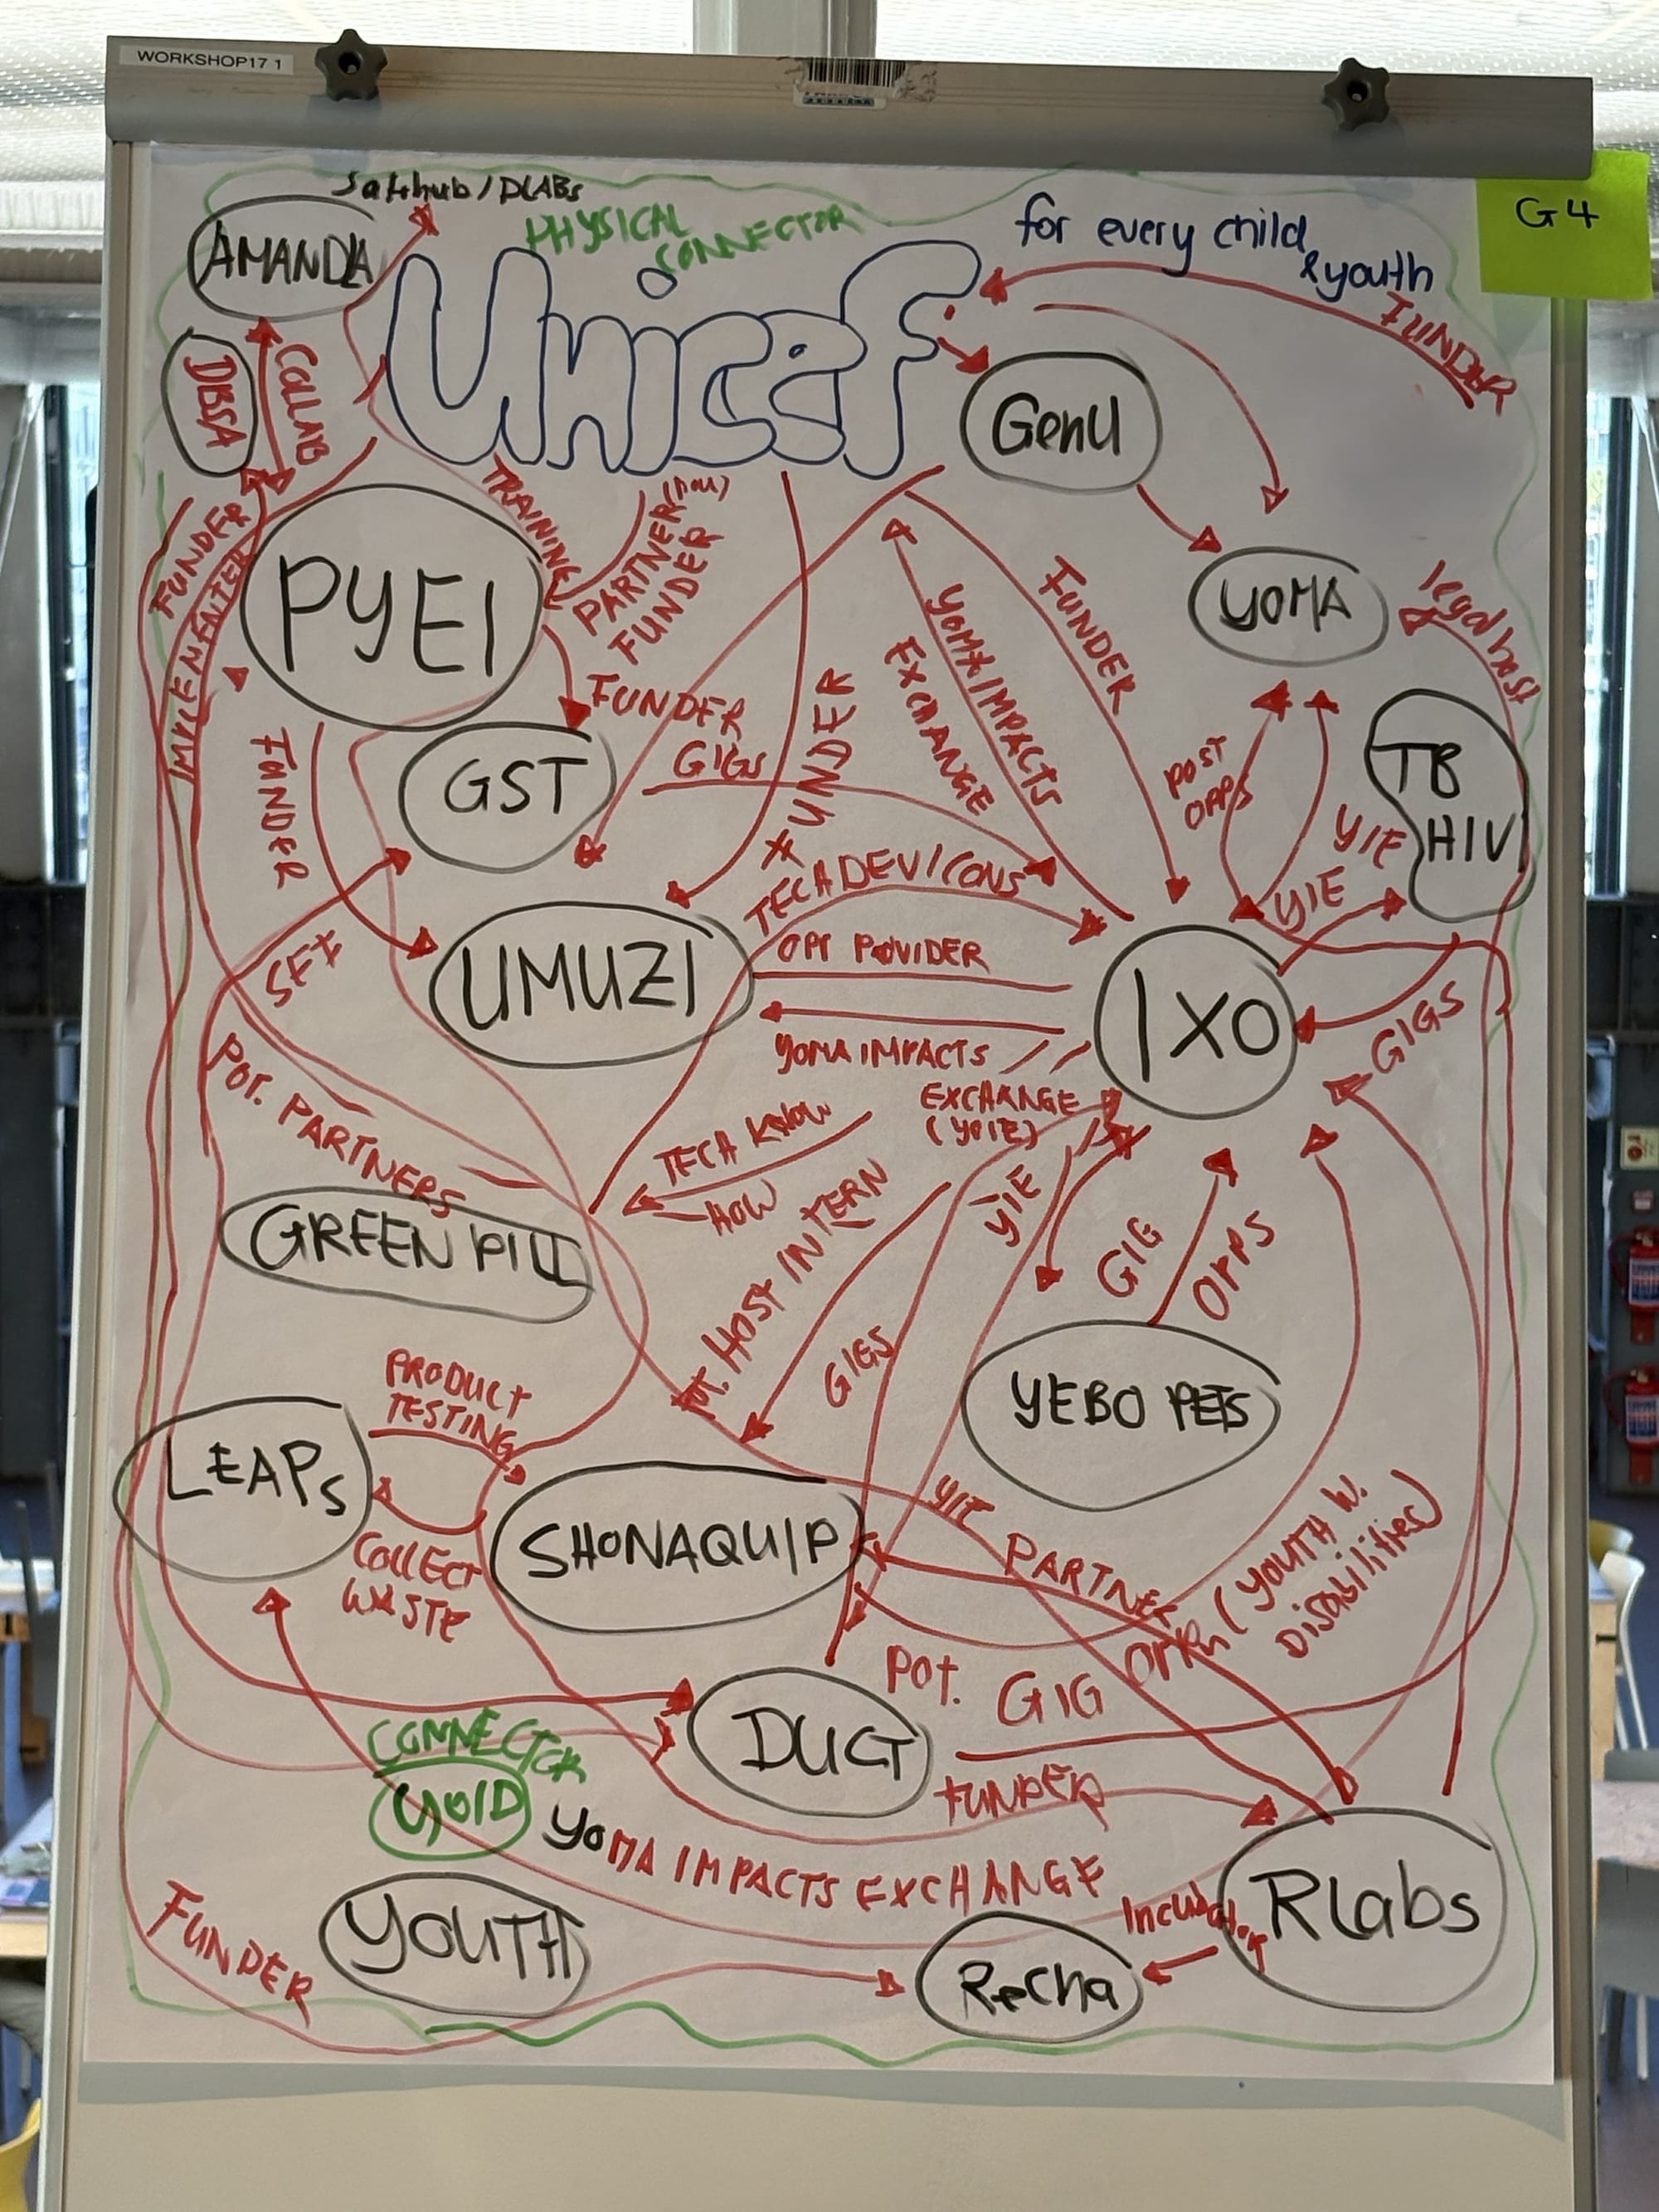 WORKSHOP17 1
G4
Satthub / DLABs
PHYSICAL
CONNECTOR
for every child
& youth
AMANDLA
Unicef
FUNDER
DBSA
COLLAB
GenU
TRAINING
PARTNER (MOU)
FUNDER
FUNDER
IMPLEMENTER
PYEI
YOMA
legal host
FUNDER
YOMA IMPACTS
EXCHANGE
FUNDER
FUNDER
GIGS
GST
FUNDER
POST
OPPS
YIE
YIE
TB
HIV
TECH DEV/CONS
OPP PROVIDER
SEF
UMUZI
IXO
YOMA IMPACTS
EXCHANGE
(YOIE)
GIGS
POT. PARTNERS
TECH KNOW
HOW
GREEN PILL
POT. HOST INTERN
YIE
GIG
OPPS
GIGS
YEBO PETS
PRODUCT
TESTING
LEAPs
COLLECT
WASTE
SHONAQUIP
YIE
PARTNER
OPPs (YOUTH W.
Disabilities)
POT. GIG
DUCT
CONNECTOR
YOID
FUNDER
YOMA IMPACTS EXCHANGE
FUNDER
YOUTH
Incubator
Rlabs
Recha